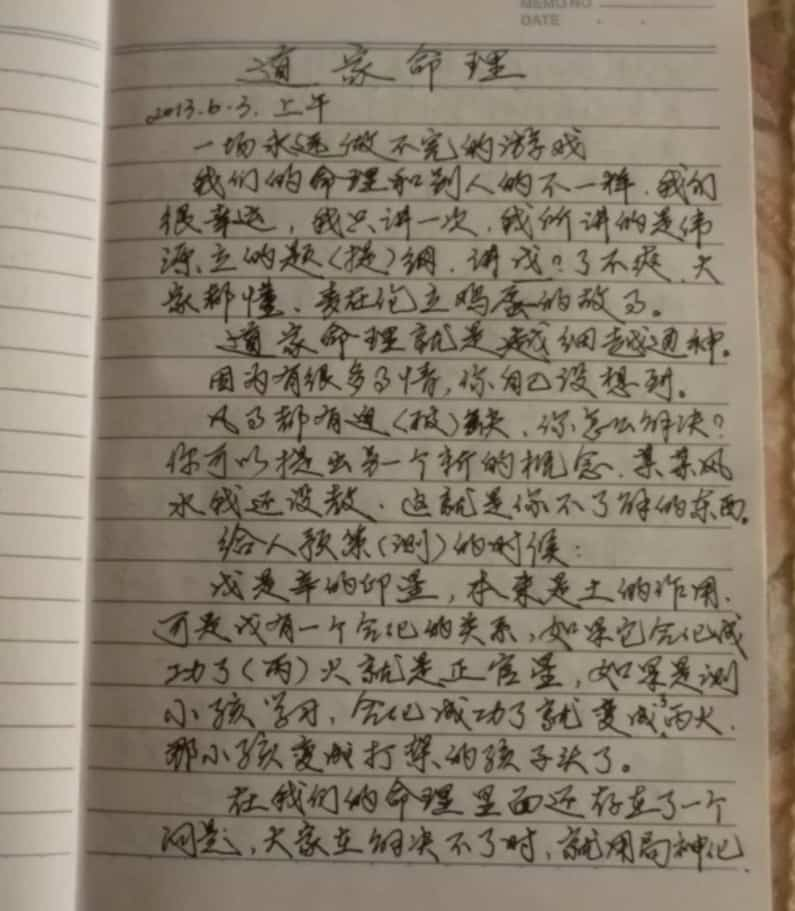 MEMO NO
DATE . .
道家命理
2013.6.3.上午
一场永远做不完的游戏
我们的命理和别人的不一样.我们
很幸运,我只讲一次,我所讲的是伟
立的题(提)纲.讲戊?了不疾.大
家都懂.论立鸡蛋的故了。
道家命理就是越细越通神。
因为有很多了情,你自己没想到。
凡了都有(破)缺.你怎么解决?
你可以提出另一个新的概念.某某风
水我还没教.这就是你不了解的东西。
给人预策(测)的时候:
戊是辛的印星,本来是土的作用.
可是戊有一个合化的关系,如果它合化成
功了(丙)火就是正官星,如果是测
小孩学习.合化成功了就变成丙火.
那小孩变成打架的孩子头了。
在我们的命理里面还存在了一个
问题,大家在解决不了时,就用局神化